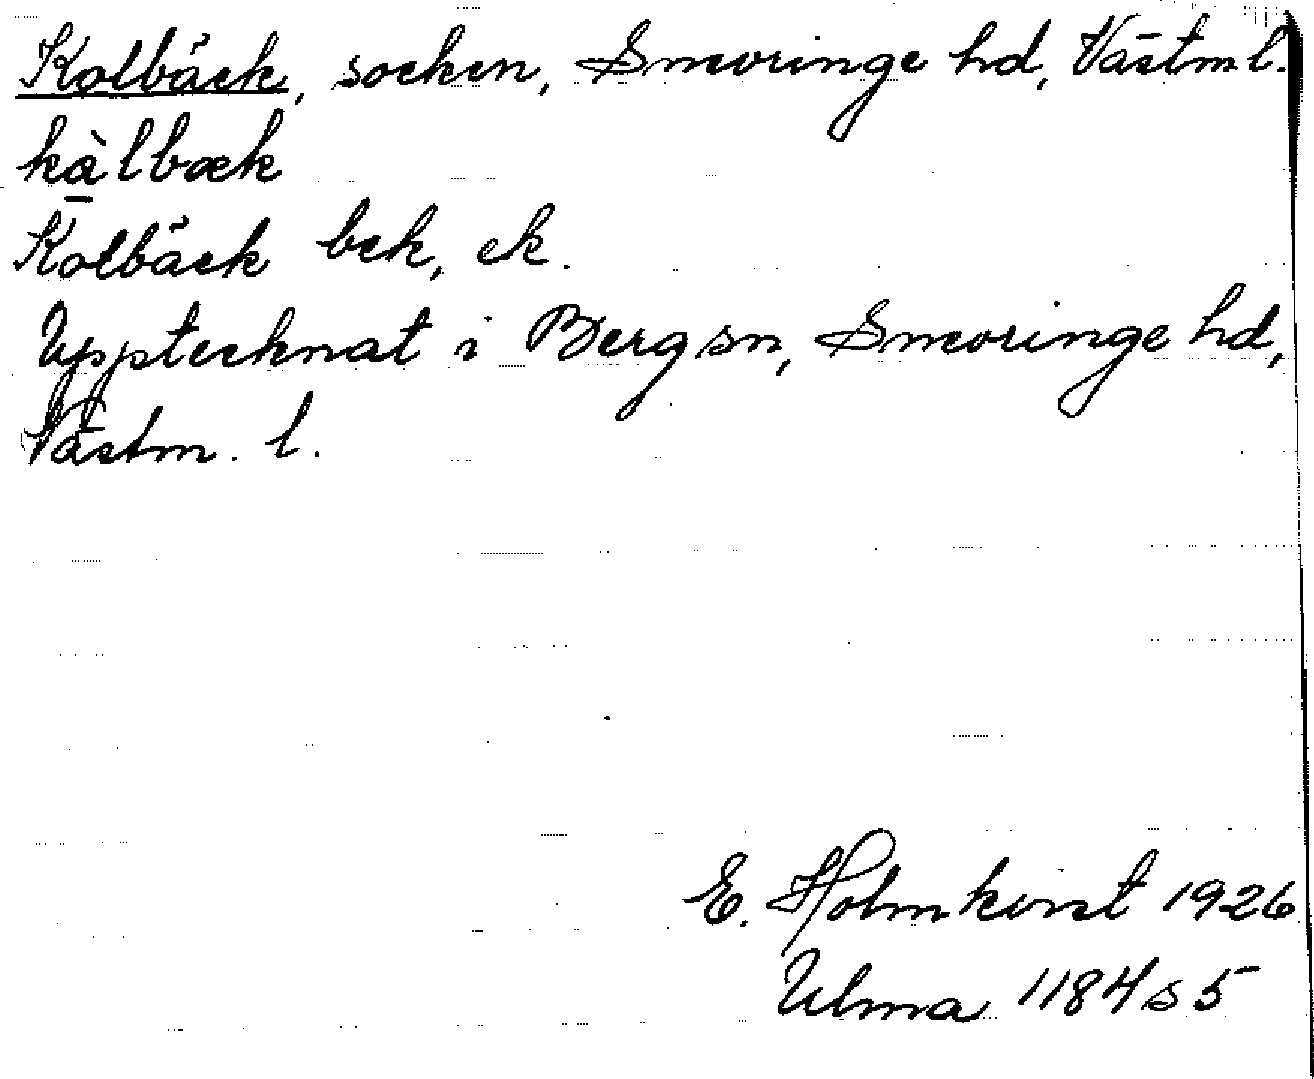 Kolbäck, socken, Snevringe hd, Västml.
kàlbæk
Kolbäck bek, ek.
Upptecknat i Berg sn, Snevringe hd,
Västm. l.
E. Holmkvist 1926
Ulma 1184 s 5